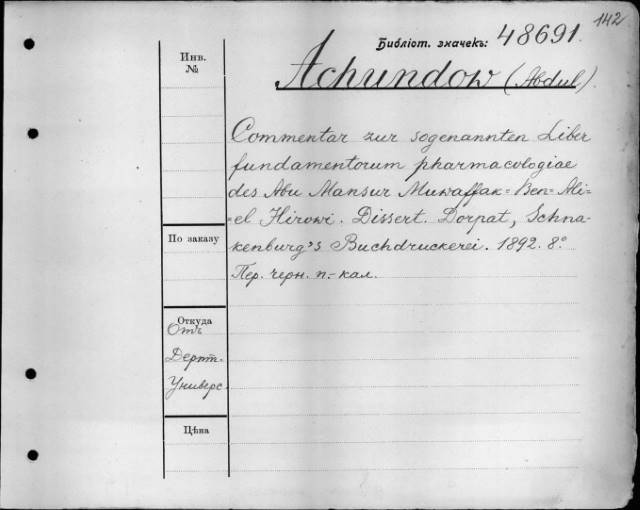 142
Библіот. значекъ: 48691.
Инв.
№
Achundow (Abdul).
Commentar zur sogenannten Liber
fundamentorum pharmacologiae
des Abu Mansur Muwaffak-Ben-Ali-
-el Hirowi. Dissert. Dorpat, Schna-
kenburg's Buchdruckerei. 1892. 8°
Пер. черн. п.-кал.
По заказу
Откуда
Отъ
Дерпт.
Универс.
Цѣна